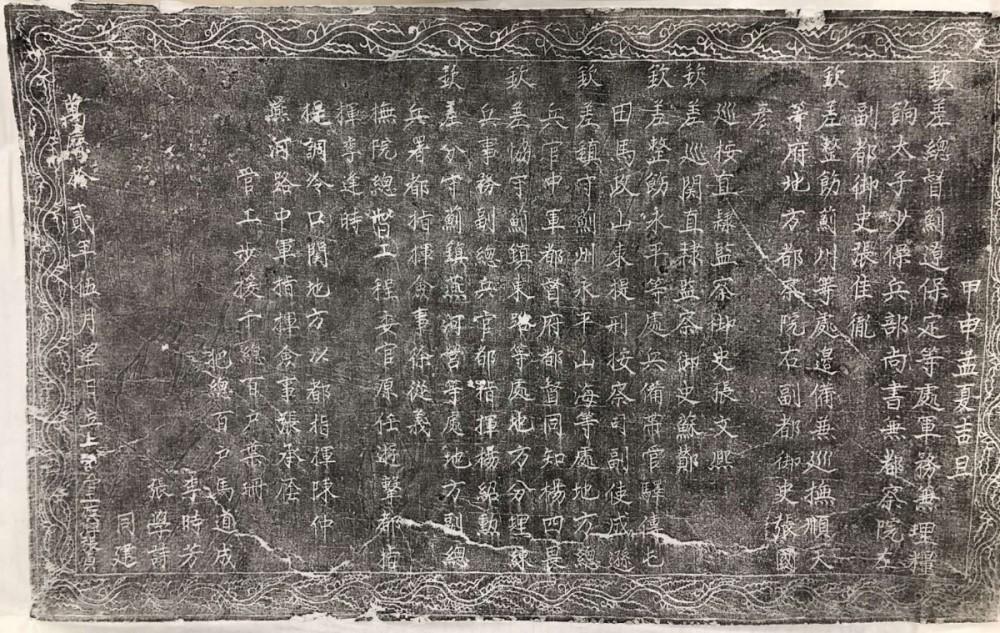 甲申孟夏吉旦
欽差總督薊遼保定等處軍務兼理糧
餉太子少保兵部尚書兼都察院左
副都御史張佳胤
欽差整飭薊州等處邊備兼巡撫順天
等府地方都察院右副都御史張國
彥
巡按直隸監察御史張文熙
欽差巡關直隸監察御史蘇酇
欽差整飭永平等處兵備帶官驛傳屯
田馬政山東提刑按察司副使成遜
欽差鎮守薊州永平山海等處地方總
兵官中軍都督府都督同知楊四畏
欽差協守薊鎮東路等處地方分理練
兵事務副總兵官都指揮楊紹勳
欽差分守薊鎮燕河營等處地方副總
兵署都指揮僉事徐從義
撫院總督工程委官原任遊擊都指
揮李逢時
提調冷口關地方以都指揮陳仲
燕河路中軍指揮僉事張承
管工步後千總百戶葉珊
把總百戶馬道成
李時芳
張學詩
同建
萬曆拾貳年伍月日立